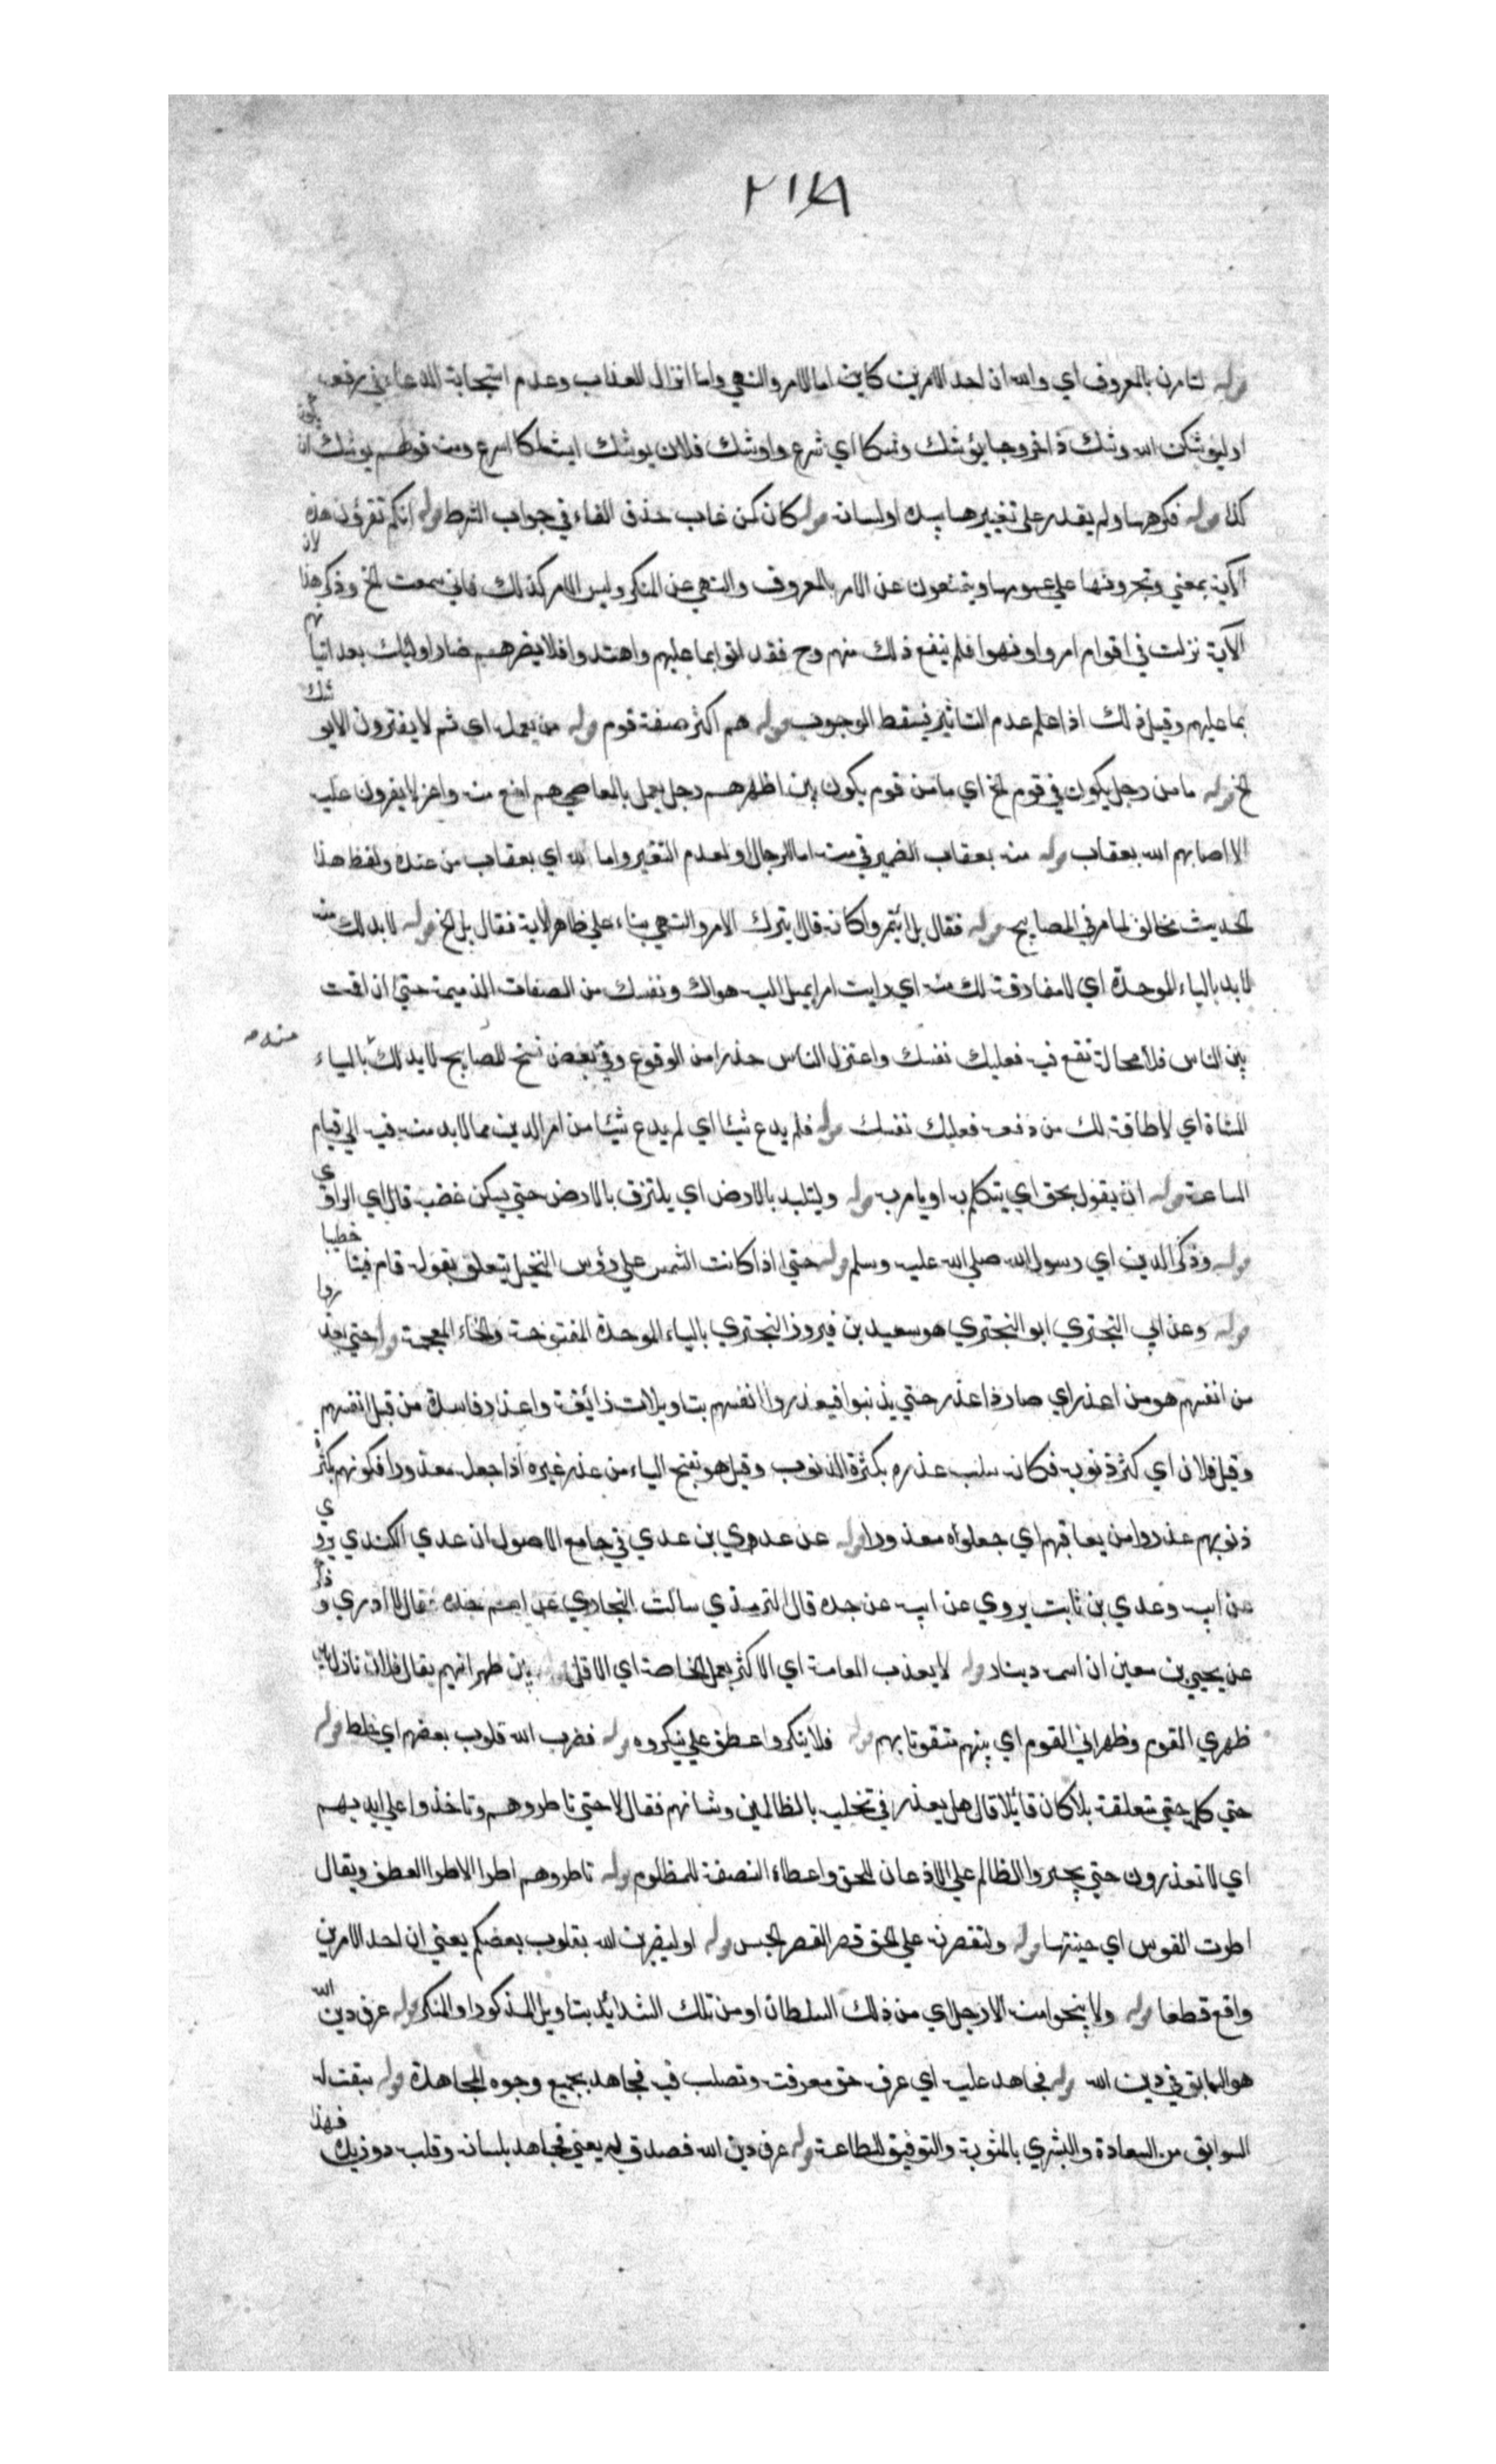 ٢١٨
قوله لتأمرن بالمعروف اي والله ان احد الامرين كاين اما الامر والنهي واما انزال العذاب وعدم استجابة الدعاء في رفعه
او ليوشكن الله وشك ذا خروجا يوشك وشكا اي شرع واوشك فلان يوشك ايشاكا اسرع ومنه قولهم يوشك ان يكون
كذا قوله فكرهها ولم يقدر على تغييرها بيده او لسانه قوله كان كمن غاب حذف الفاء في جواب الشرط قوله انكم تقرؤن هذه
الآية بمعني وتجرونها علي عمومها وتمتنعون عن الامر بالمعروف والنهي عن المنكر وليس الامر كذلك فاني سمعت الخ وذكر هذا لان
الآية نزلت في اقوام امروا ونهوا فلم ينفع ذلك منهم وح فقد اتوا بما عليهم واهتدوا فلا يضرهم ضلال اولئك بعد اتيانهم
بما عليهم وقيل ذلك اذا علم عدم التاثير فيسقط الوجوب قوله هم اكثر صفة قوم قوله من يعمل اي ثم لا يغيرون الا يوشك
الخ قوله ما من رجل يكون في قوم الخ اي ما من قوم يكون بين اظهرهم رجل يعمل بالمعاصي هم امنع منه واعز لا يغيرون عليه
الا اصابهم الله بعقاب قوله منه بعقاب الضمير في منه اما للرجال او لعدم التغير واما لله اي بعقاب من عنده ولفظ هذا
الحديث مخالف لما مر في المصابيح قوله فقال بل ائتمروا كانه قال يترك الامر والنهي بناء علي ظاهر الاية فقال بل الخ قوله لابد لك منه
لابد بالباء الموحدة اي لا مفارقة لك منه اي رايت امرا يميل اليه هواك ونفسك من الصفات الذميمة حتي ان اقمت
بين الناس فلا محالة تقع فيه فعليك نفسك واعتزل الناس حذرا من الوقوع وفي بعض نسخ المصابيح لا يد لك بالياء
المثناة اي لا طاقة لك من دفعه فعليك نفسك قوله فلم يدع شيئا اي لم يدع شيئا من امر الدين مما لابد منه فيه الي قيام
الساعة قوله ان يقول بحق اي يتكلم به او يامر به قوله وليتلبد بالارض اي يلتزق بالارض حتي يسكن غضبه قال اي الراوي
قوله وذكر الدين اي رسول الله صلي الله عليه وسلم قوله حتي اذا كانت الشمس علي رؤس النخيل يتعلق بقوله قام فينا خطيبا
قوله وعن ابي البختري ابو البختري هو سعيد بن فيروز البختري بالباء الموحدة المفتوحة والخاء المعجمة قوله حتي يعذروا
من انفسهم هو من اعذر اي صار ذا عذر حتي يذنبوا فيعذروا انفسهم بتاويلات زائفة واعذار فاسدة من قبل انفسهم
وقيل فلان اي كثر ذنوبه فكانه سلب عذره بكثرة الذنوب وقيل هو بفتح الياء من عذر غيره اذا جعله معذورا فكونهم بكثرة
ذنوبهم عذروا من يعاقبهم اي جعلوه معذورا قوله عن عدي بن عدي في جامع الاصول ان عدي الكندي يروي
عن ابيه وعدي بن ثابت يروي عن ابيه عن جده قال الترمذي سالت البخاري عن اسم جده فقال لا ادري وذكر
عن يحيي بن معين ان اسمه دينار قوله لا يعذب العامة اي الاكثر بعمل الخاصة اي الاقل قوله بين ظهرانيهم يقال فلان نازل بين
ظهري القوم وظهراني القوم اي بينهم متقويا بهم قوله فلا ينكروا عطف علي ينكروه قوله فضرب الله قلوب بعضهم اي خلط قوله
حتي كلمة حتي متعلقة بلا كان قائلا قال هل يعذر في تخلية بالظالمين وشانهم فقال لا حتي تاطروهم وتاخذوا علي ايديهم
اي لا تعذرون حتي يجبروا الظالم علي الاذعان للحق واعطاء النصفة للمظلوم قوله تاطروهم اطرا الاطرا العطف ويقال
اطرت القوس اي حنيتها قوله ولتقصرنه علي الحق قصرا القصر الحبس قوله او ليضربن الله بقلوب بعضكم يعني ان احد الامرين
واقع قطعا قوله ولا ينجوا منه الا رجل اي من ذلك السلطان او من تلك الشدائد بتاويل المذكور او المنكر قوله عرف دين الله
هو السابق في دين الله قوله فجاهد عليه اي عرف حق معرفته وتصلب فيه فجاهد بجميع وجوه المجاهدة قوله سبقت له
السوابق من السعادة والبشري بالمثوبة والتوفيق للطاعة قوله عرف دين الله فصدق به يعني فجاهد بلسانه وقلبه دون يده فهذا